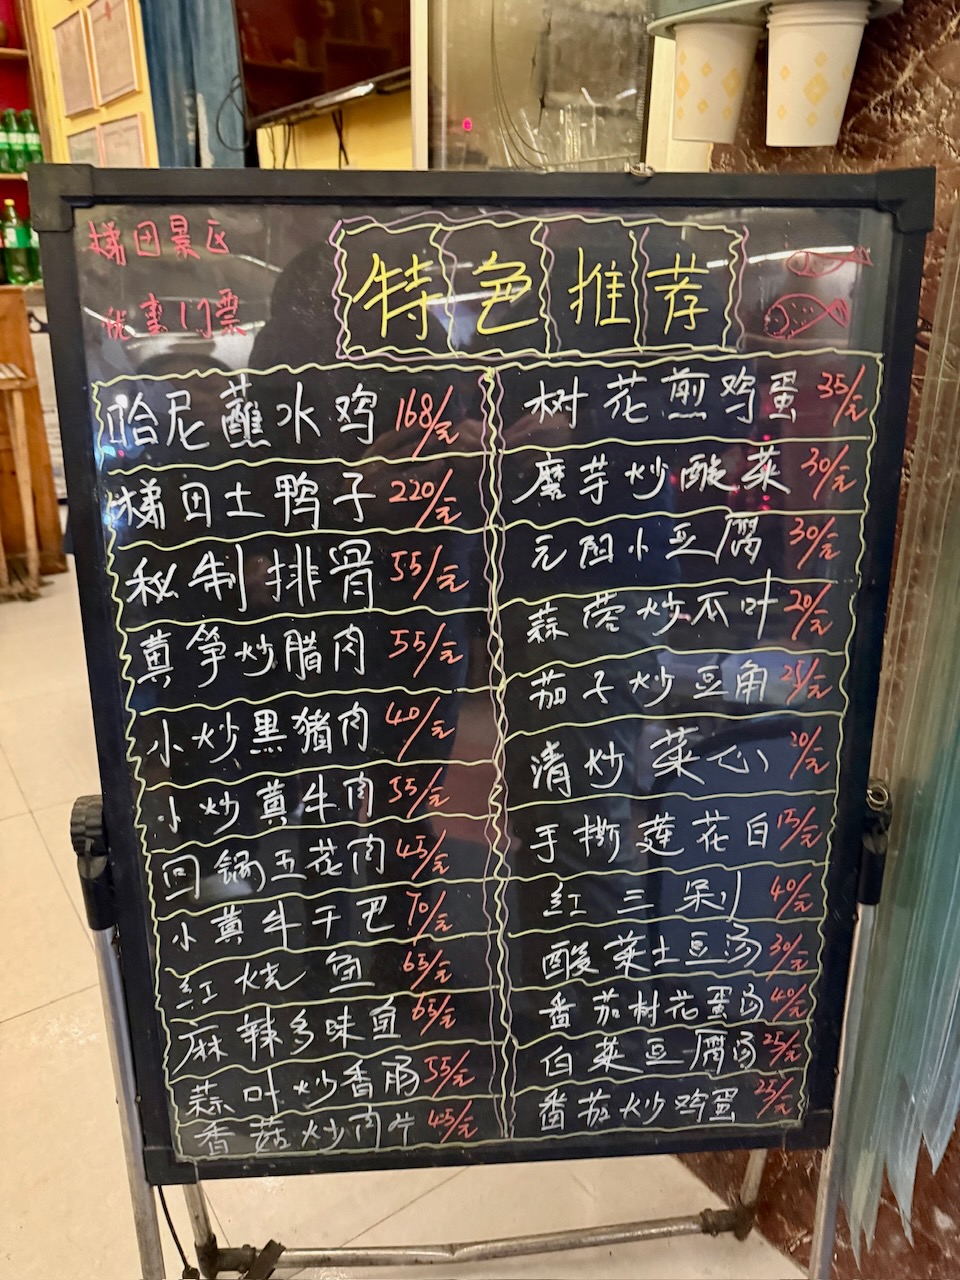 梯田景区
优惠门票
特色推荐
哈尼蘸水鸡 168/元
梯田土鸭子 220/元
秘制排骨 55/元
黄笋炒腊肉 55/元
小炒黑猪肉 40/元
小炒黄牛肉 55/元
回锅五花肉 45/元
小黄牛干巴 70/元
红烧鱼 65/元
麻辣多味鱼 65/元
蒜叶炒香肠 55/元
香菇炒肉片 45/元
树花煎鸡蛋 35/元
磨芋炒酸菜 30/元
元阳小豆腐 30/元
蒜蓉炒瓜叶 20/元
茄子炒豆角 25/元
清炒菜心 20/元
手撕莲花白 15/元
红三剁 40/元
酸菜土豆汤 30/元
番茄树花蛋汤 40/元
白菜豆腐汤 25/元
番茄炒鸡蛋 25/元